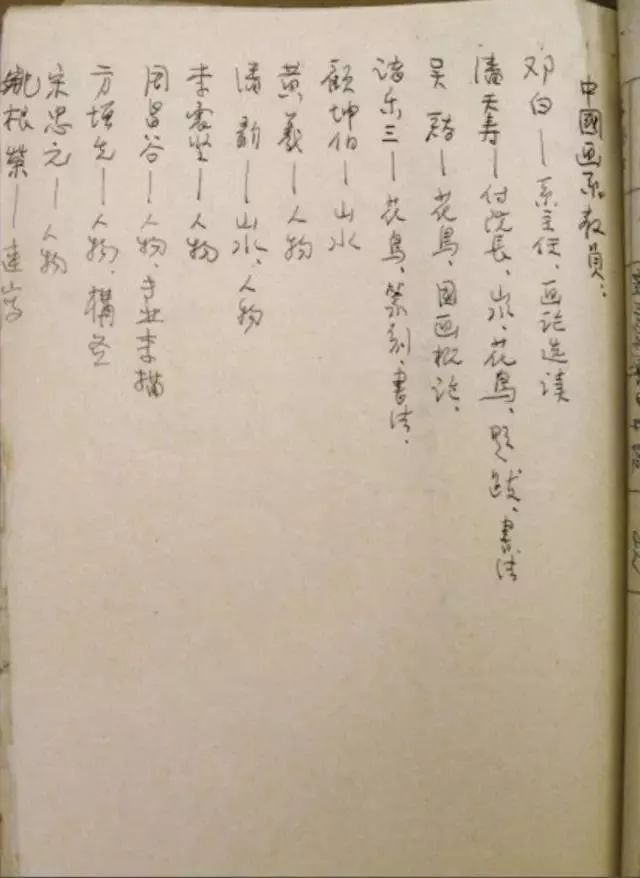 中國画系教員：
邓白——系主任、画论选读
潘天寿——付院長、山水、花鳥、题跋、書法
吴茀——花鳥、国画概论、
诸乐三——花鳥、篆刻、書法、
顾坤伯——山水
黄羲——人物
潘韵——山水、人物
李震坚——人物
周昌谷——人物、专业素描
方增先——人物、構图
宋忠元——人物
姚根荣——透视